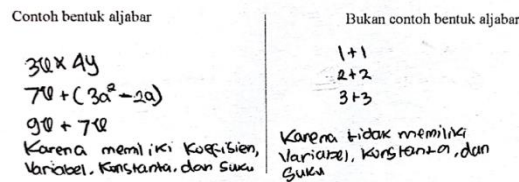 Contoh bentuk aljabar
3x × 4y
7x + (3a² - 2a)
9x + 7x
Karena memiliki Koefisien,
Variabel, Konstanta, dan Suku
Bukan contoh bentuk aljabar
1+1
2+2
3+3
Karena tidak memiliki
Variabel, Konstanta, dan
Suku